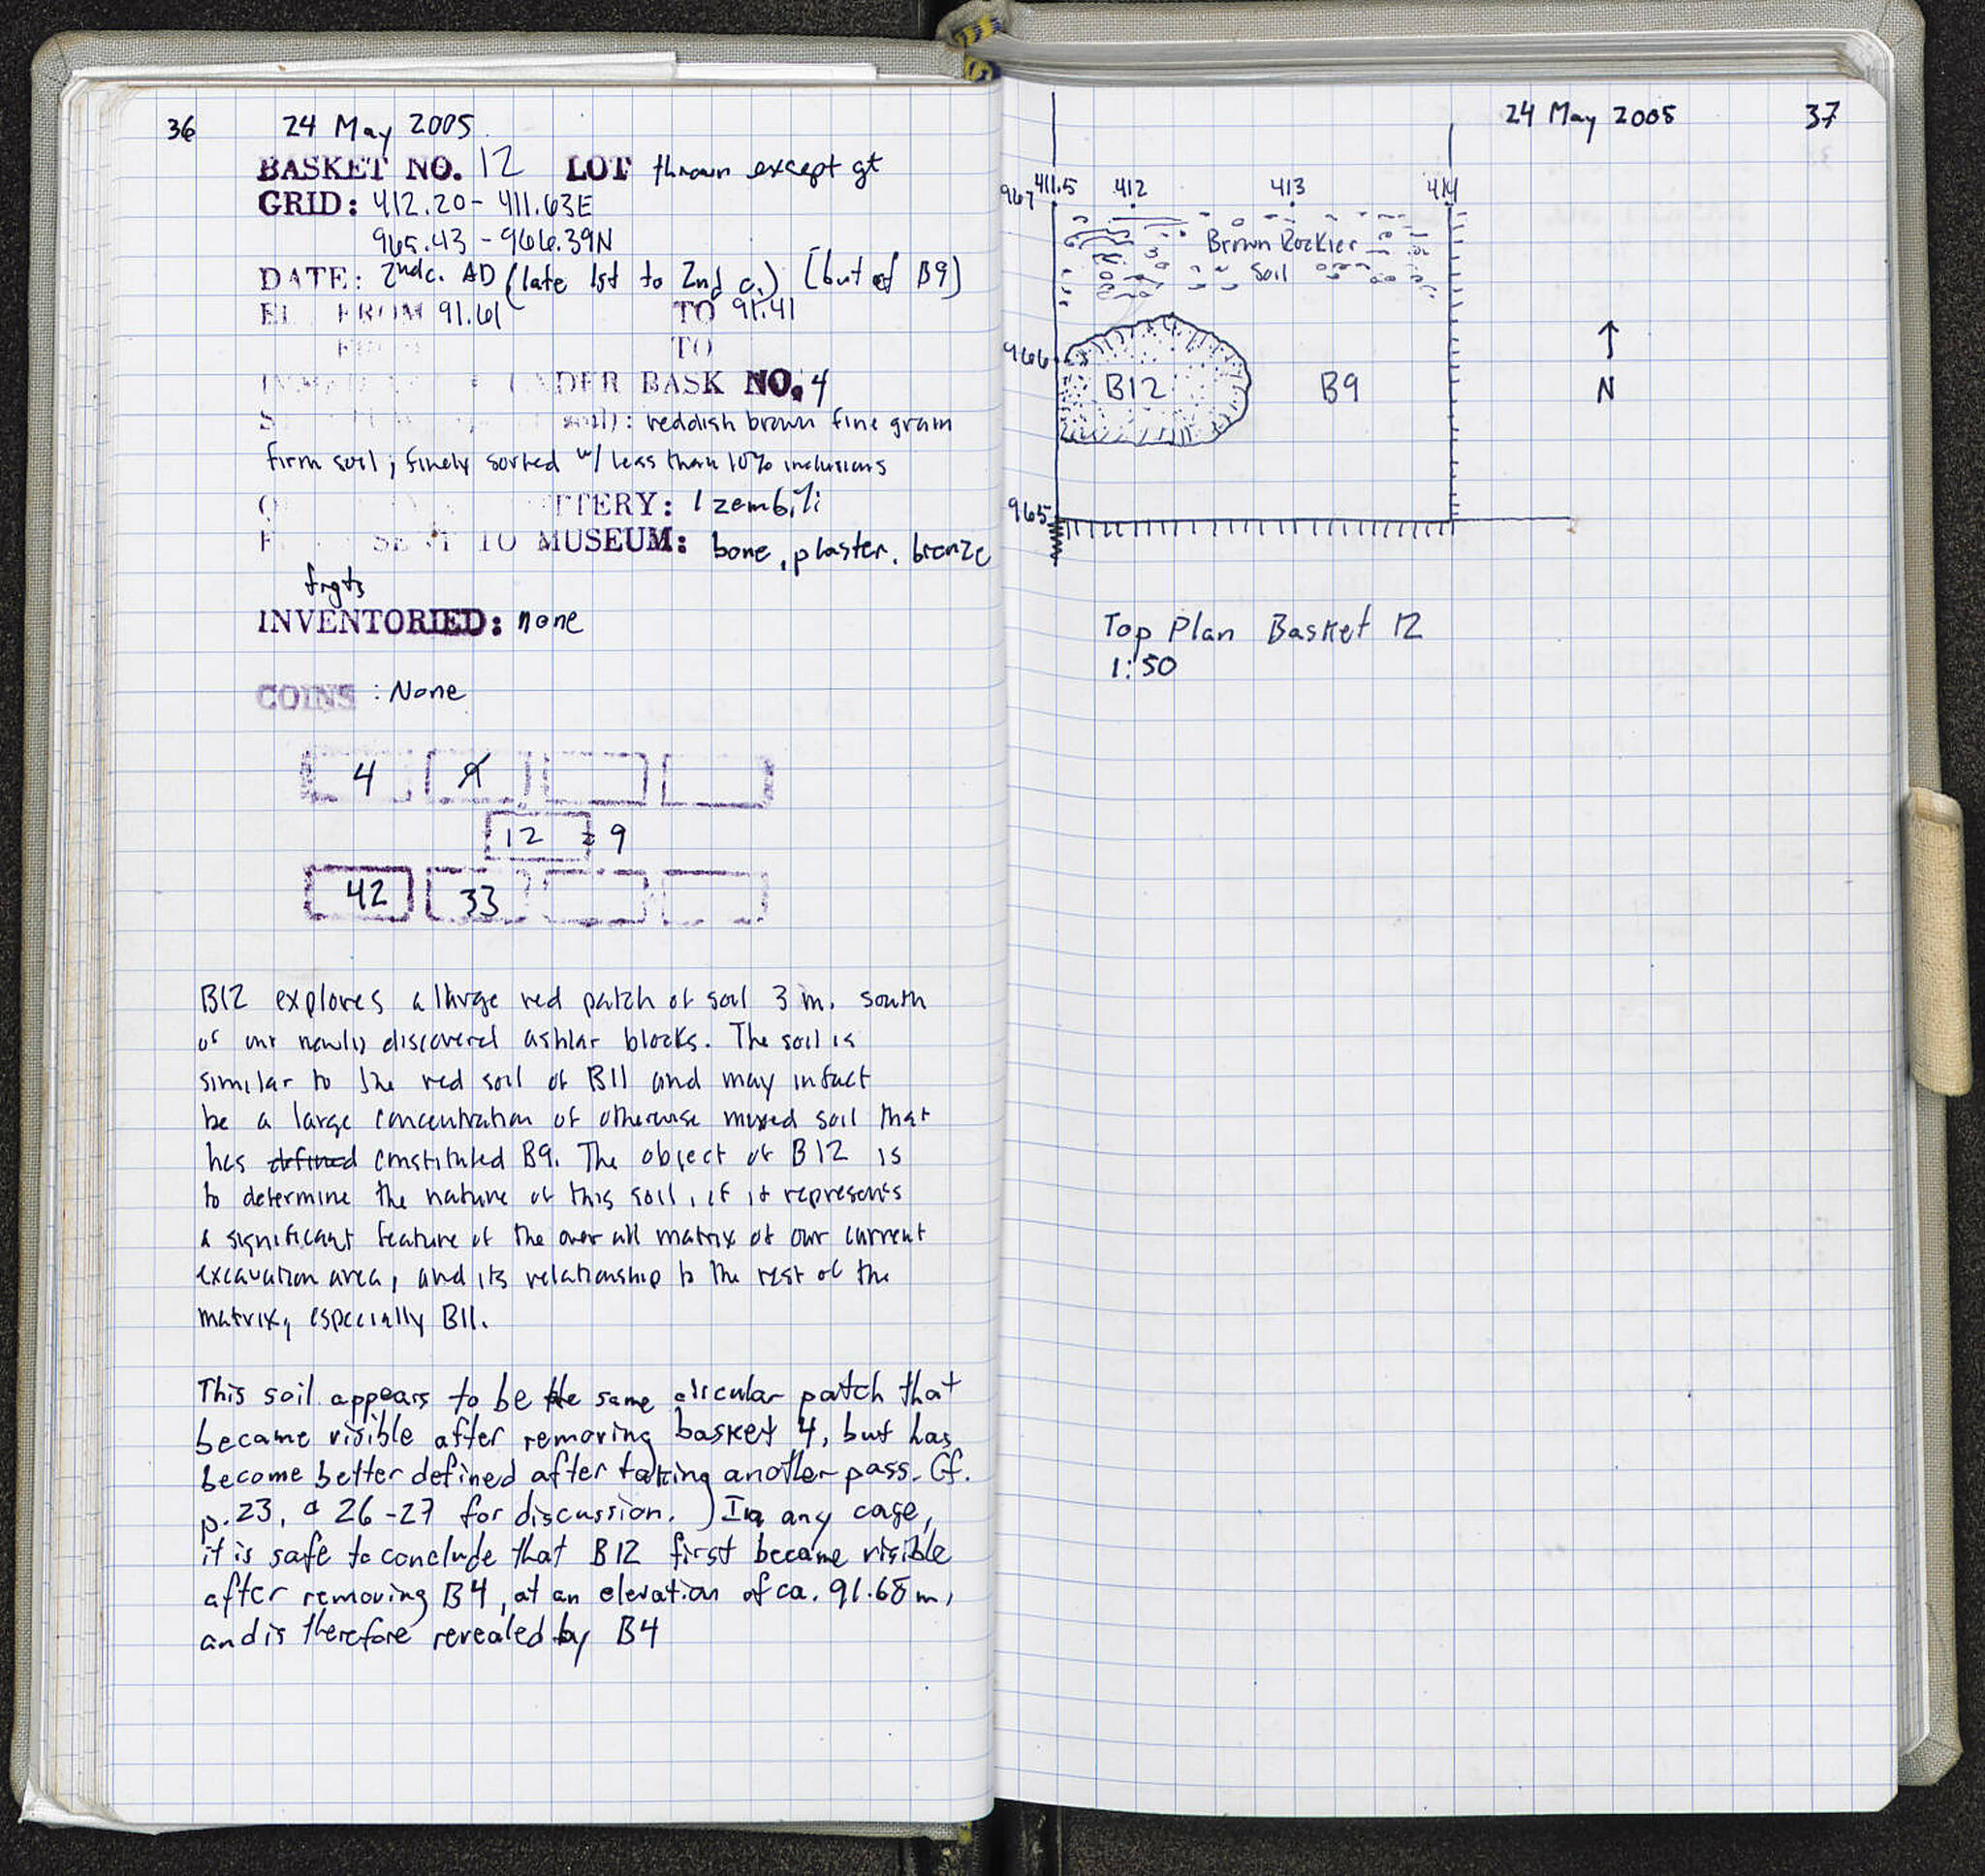 36 24 May 2005
BASKET NO. 12 LOT thrown except gt
GRID: 412.20 - 411.63E
965.43 - 966.39N
DATE: 2nd c. AD (late 1st to 2nd c.) [but of B9]
EL FROM 91.61 TO 91.41
TO
UNDER BASK NO. 4
soil): reddish brown fine grain
firm soil; finely sorted w/ less than 10% inclusions
TTERY: 1 zembili
SENT TO MUSEUM: bone, plaster, bronze
frgts
INVENTORIED: none
COINS : None
4 9
12 = 9
42 33
B12 explores a large red patch of soil 3 m. south
of our newly discovered ashlar blocks. The soil is
similar to the red soil of B11 and may in fact
be a large concentration of otherwise mixed soil that
has defined constituted B9. The object of B12 is
to determine the nature of this soil, if it represents
a significant feature of the over all matrix of our current
excavation area, and its relationship to the rest of the
matrix, especially B11.
This soil appears to be the same circular patch that
became visible after removing basket 4, but has
become better defined after taking another pass. Cf.
p. 23, 26-27 for discussion. In any case,
it is safe to conclude that B12 first became visible
after removing B4, at an elevation of ca. 91.68 m,
and is therefore revealed by B4
24 May 2005 37
411.5 412 413 414
967
Brown Rockier
Soil
966
B12 B9
N
965
Top Plan Basket 12
1:50